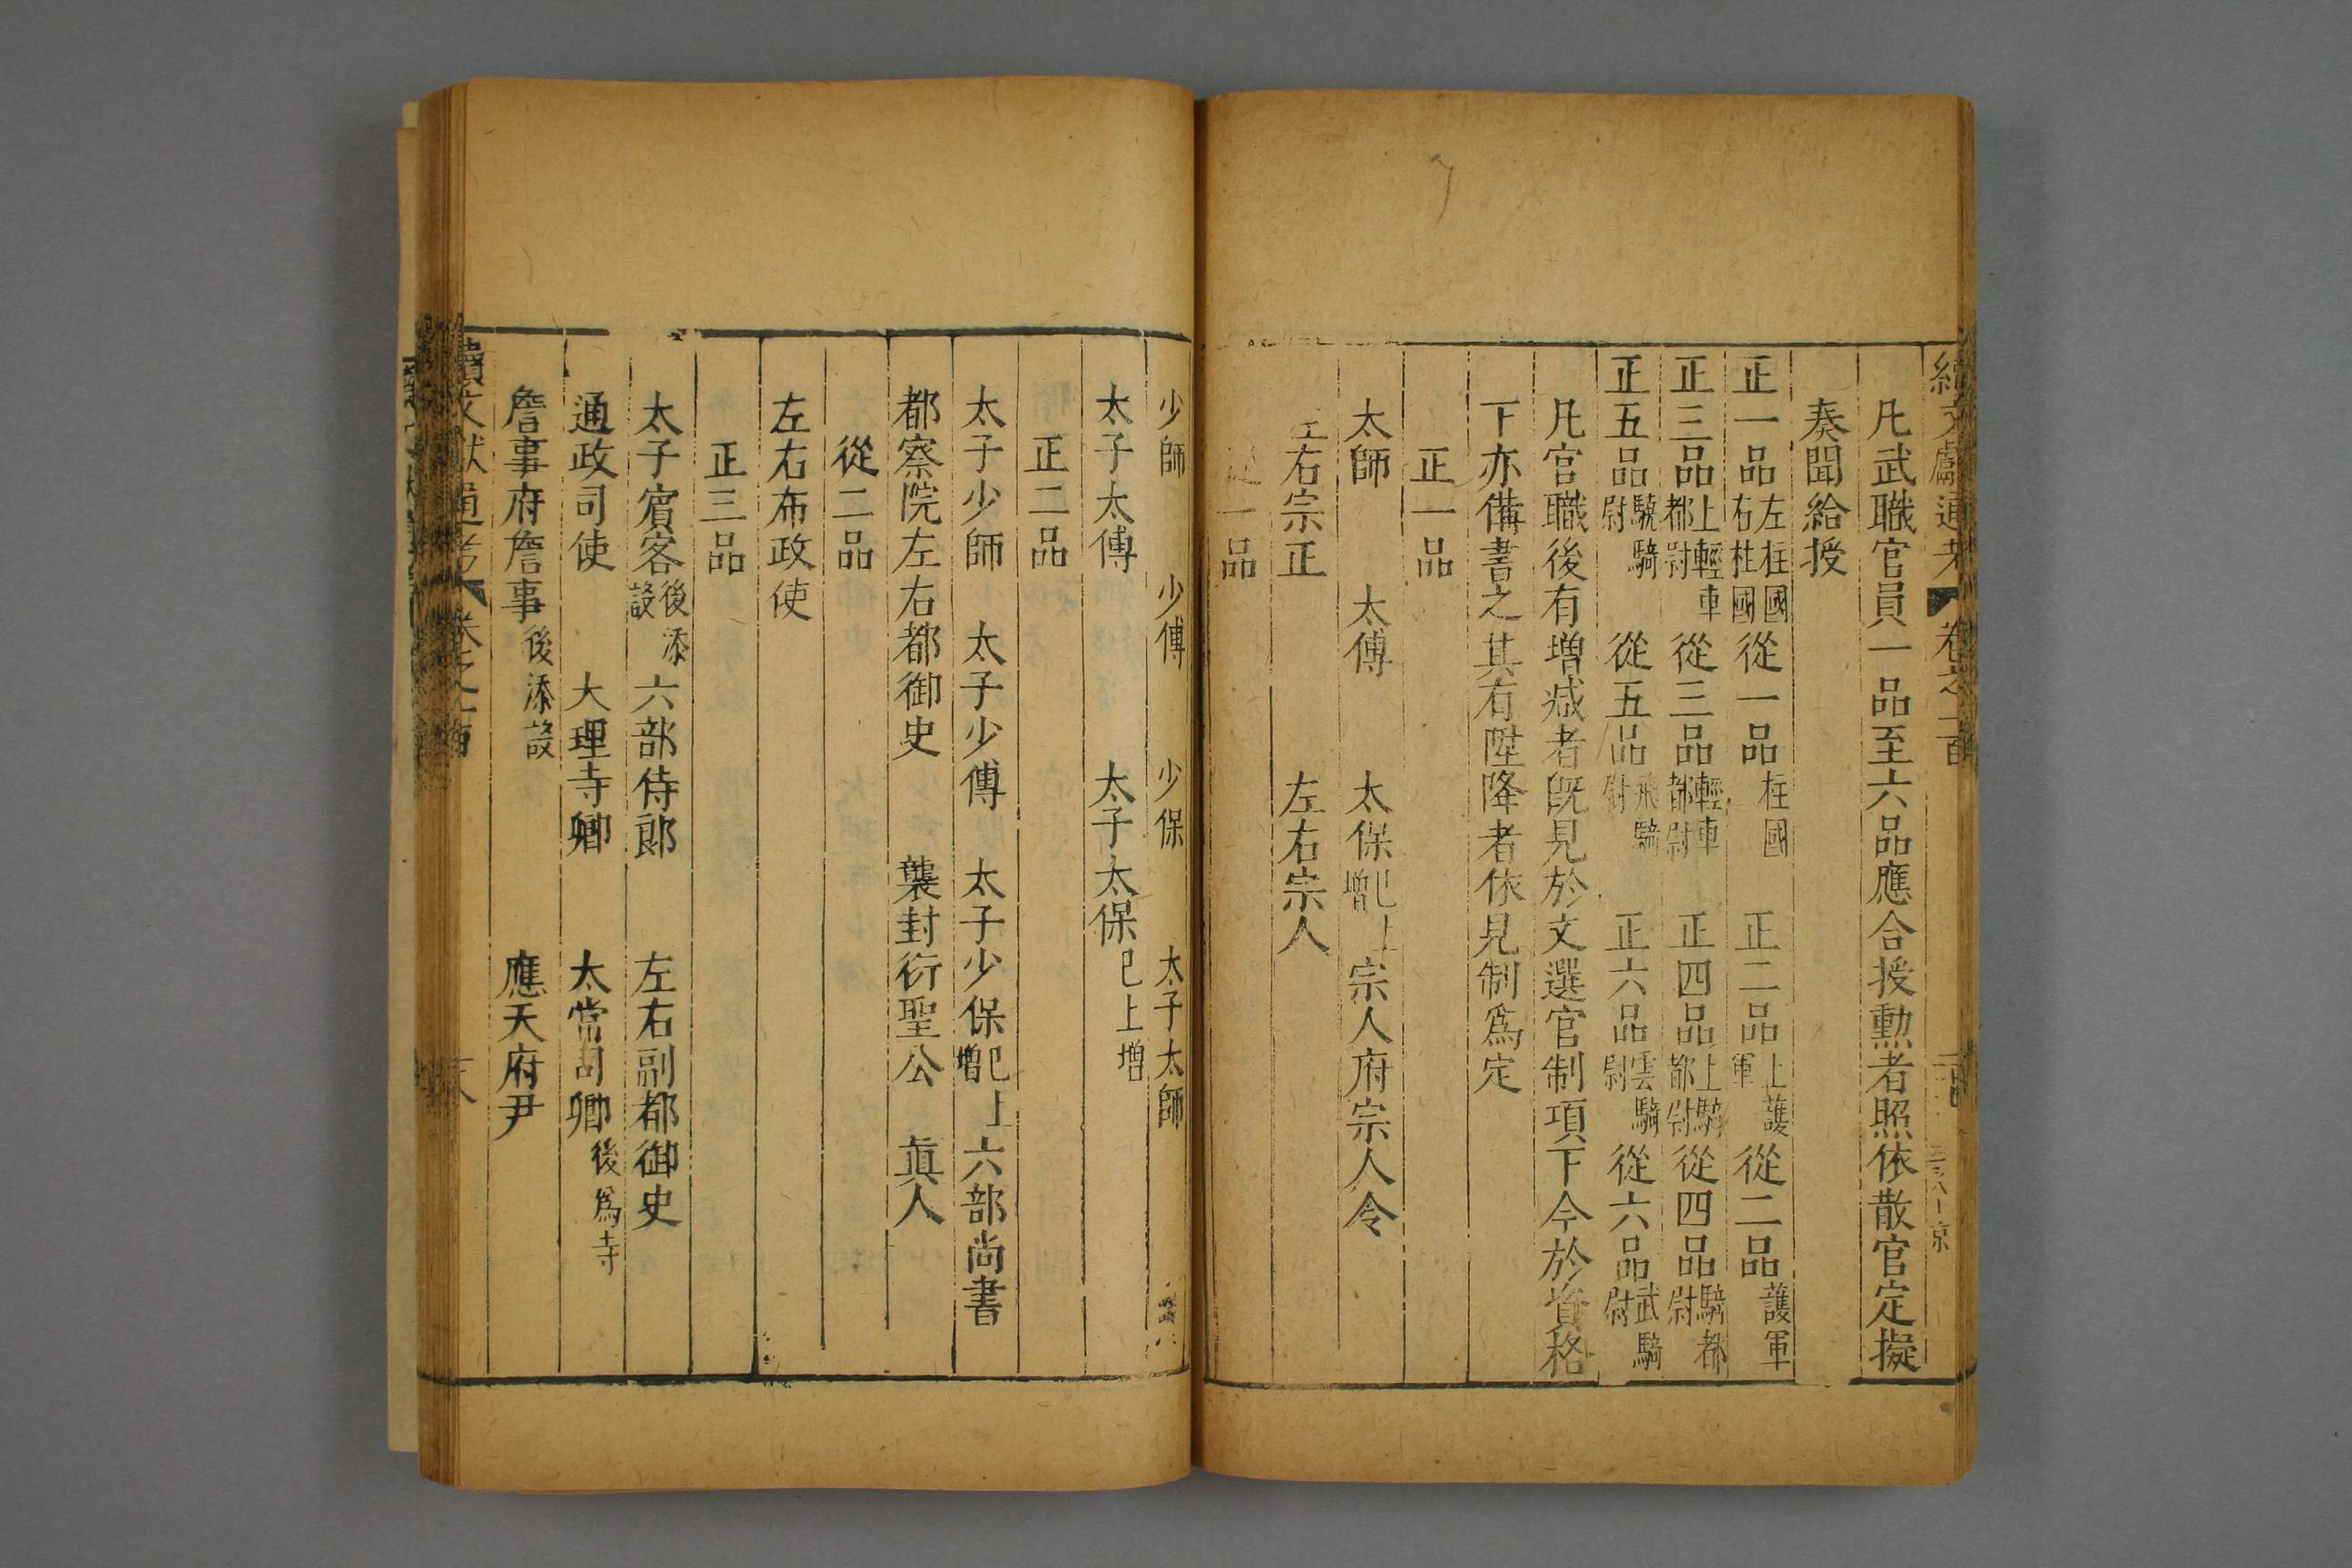 續文獻通考 卷之一百
凡武職官員一品至六品應合授勳者照依散官定擬
奏聞給授
正一品左柱國右柱國 從一品柱國 正二品上護軍 從二品護軍
正三品上輕車都尉 從三品輕車都尉 正四品上騎都尉 從四品騎都尉
正五品驍騎尉 從五品飛騎尉 正六品雲騎尉 從六品武騎尉
凡官職後有增减者旣見於文選官制項下今於資格
下亦備書之其有陞降者依見制爲定
正一品
太師 太傅 太保已上增 宗人府宗人令
左右宗正 左右宗人
從一品
少師 少傅 少保 太子太師
太子太傅 太子太保已上增
正二品
太子少師 太子少傅 太子少保已上增 六部尚書
都察院左右都御史 襲封衍聖公 眞人
從二品
左右布政使
正三品
太子賓客後添設 六部侍郎 左右副都御史
通政司使 大理寺卿 太常司卿後爲寺
詹事府詹事後添設 應天府尹
續文獻通考 卷之一百